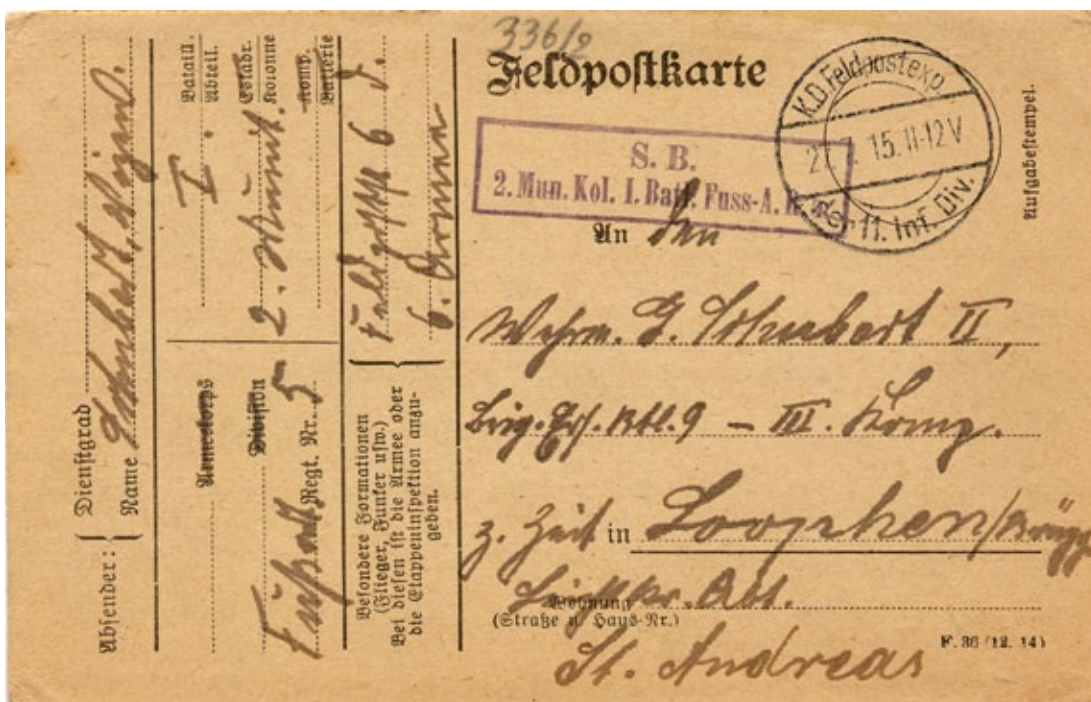 336/2
Feldpostkarte
K.D.Feldpostexp.
7. 15. 11-12V
der 11. Inf. Div.
Aufgabestempel.
S. B.
2. Mun. Kol. I. Batl. Fuss-A. R.
An den
Wehrm. G. Schubert II,
Brig. Ers. Btl. 9 – III. Komp.
z. Zeit in
Abt.
Wohnung
(Straße u. Haus-Nr.)
St. Andreas
F. 36 (12. 14)
Absender:
Dienstgrad
Name
Armeekorps
Division
Fußart. Regt. Nr. 5
Bataill.
Abteil.
I.
Eskadr.
Kolonne
2. Munit.
Komp.
Batterie
Besondere Formationen
(Flieger, Funker usw.)
Bei diesen ist die Armee oder
die Etappeninspektion anzu-
geben.
6. Armee